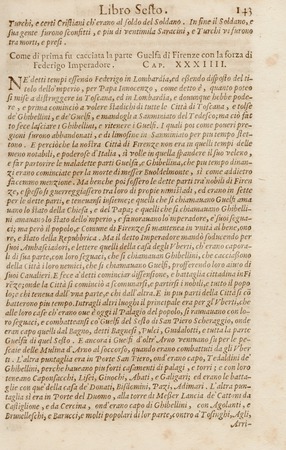 Libro Sesto. 143
Turchi, e certi Christiani ch'erano al soldo del Soldano. In fine il Soldano, e
sua gente furono sconfitti, e piu di ventimila Saracini, e Turchi vi furono
tra morti, e presi.
Come di prima fu cacciata la parte Guelfa di Firenze con la forza di
Federigo Imperadore. Cap. XXXIIII.
NE' detti tempi essendo Federigo in Lombardia, ed essendo disposto del ti-
tolo dello'mperio, per Papa Innocenzo, come detto è, quanto poteo
si mise a distruggere in Toscana, ed in Lombardia, e dounque hebbe pode-
re, e prima cominciò a volere stadichi di tutte le Città di Toscana, e tolse
de Ghibellini, e de' Guelfi, e mandogli a Sanminiato del Tedesco; ma ciò fat
to fece lasciare i Ghibellini, e ritenere i Guelfi. I quali poi come poueri pre-
gioni furono abbandonati, e di limosine in Sanminiato per piu tempo stet-
tono. E perciòche la nostra Città di Firenze non era in quelli tempi delle
meno notabili, e poderose d'Italia, si volle in quella spandere il suo veleno,
e far partorire le maladette parti Guelfa, e Ghibellina, che piu tempo dinan-
zi erano cominciate per la morte di messer Buondelmonte, sì come addietro
facemmo menzione. Ma benche poi fossero le dette parti tra i nobili di Firen-
ze, e spesso si guerreggiassero tra loro di proprie nimistadi, ed erano in sette
per le dette parti, e teneuansi insieme; e quelli che si chiamauano Guelfi ama
uano lo stato della Chiesa, e del Papa; e quelli che si chiamauano Ghibelli-
ni amauano lo stato dello'mperio, e fauorauano lo'mperadore, e suoi segua-
ci; ma però il popolo, e Comune di Firenze si mantenea in vnità al bene, ono
re, e stato della Republica. Ma il detto Imperadore mandò soducendo per
suoi Ambasciadori, e lettere quelli della casa degli Vberti, ch'erano capora-
li di sua parte, con loro seguaci, che si chiamauan Ghibellini, che cacciassono
della Città i loro nemici, che si chiamauano Guelfi, profferendo loro aiuto di
suoi Caualieri. E fece a detti cominciar dissensione, e battaglia cittadina in Fi
renze; onde la Città si cominciò a scommouere, e partirsi i nobili, e tutto il popo
lo; e chi tenea dall'vna parte, e chi dall'altra. E in piu parti della Città si co
batterono piu tempo. Intra gli altri luoghi il principale era per gli Vberti, che
alle loro case ch'erano oue è oggi il Palagio del popolo, si raunauano con lo-
ro seguaci, e combatteansi co' Guelfi del Sesto di San Piero Scheraggio, onde
eran capo quelli del Bagno, detti Bagnesi, Pulci, Guidalotti, e tutta la parte
Guelfa di quel Sesto. E ancora i Guelfi d'oltr'Arno veniuano su per le pe-
scaie delle Mulina d'Arno al soccorso, quando erano combattuti da gli Vber
ti. L'altra puntaglia era in Porte San Piero, ond'erano capo, Tedaldini de'
Ghibellini, perche haueano piu forti casamenti di palagi, e torri; e con loro
teneano Caponsacchi, Lisei, Giuochi, Abati, e Galigari; ed erano le battaglie
con que' della casa de' Donati, Bisdomini, Pazi, Adimari. L'altra pun-
taglia si era in Porte del Duomo, alla torre di Messer Lancia de' Cattani da
Castiglione, e da Cercina, ond'erano capo di Ghibellini, con Agolanti, e
Brunelleschi, e Barucci, e molti popolari di lor parte, contro a' Tosinghi, Agli,
Arri-